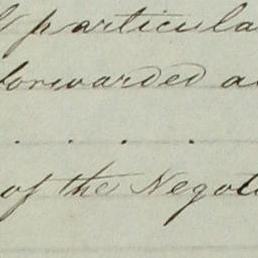 particula
forwarded a
. . . .
of the Negoti